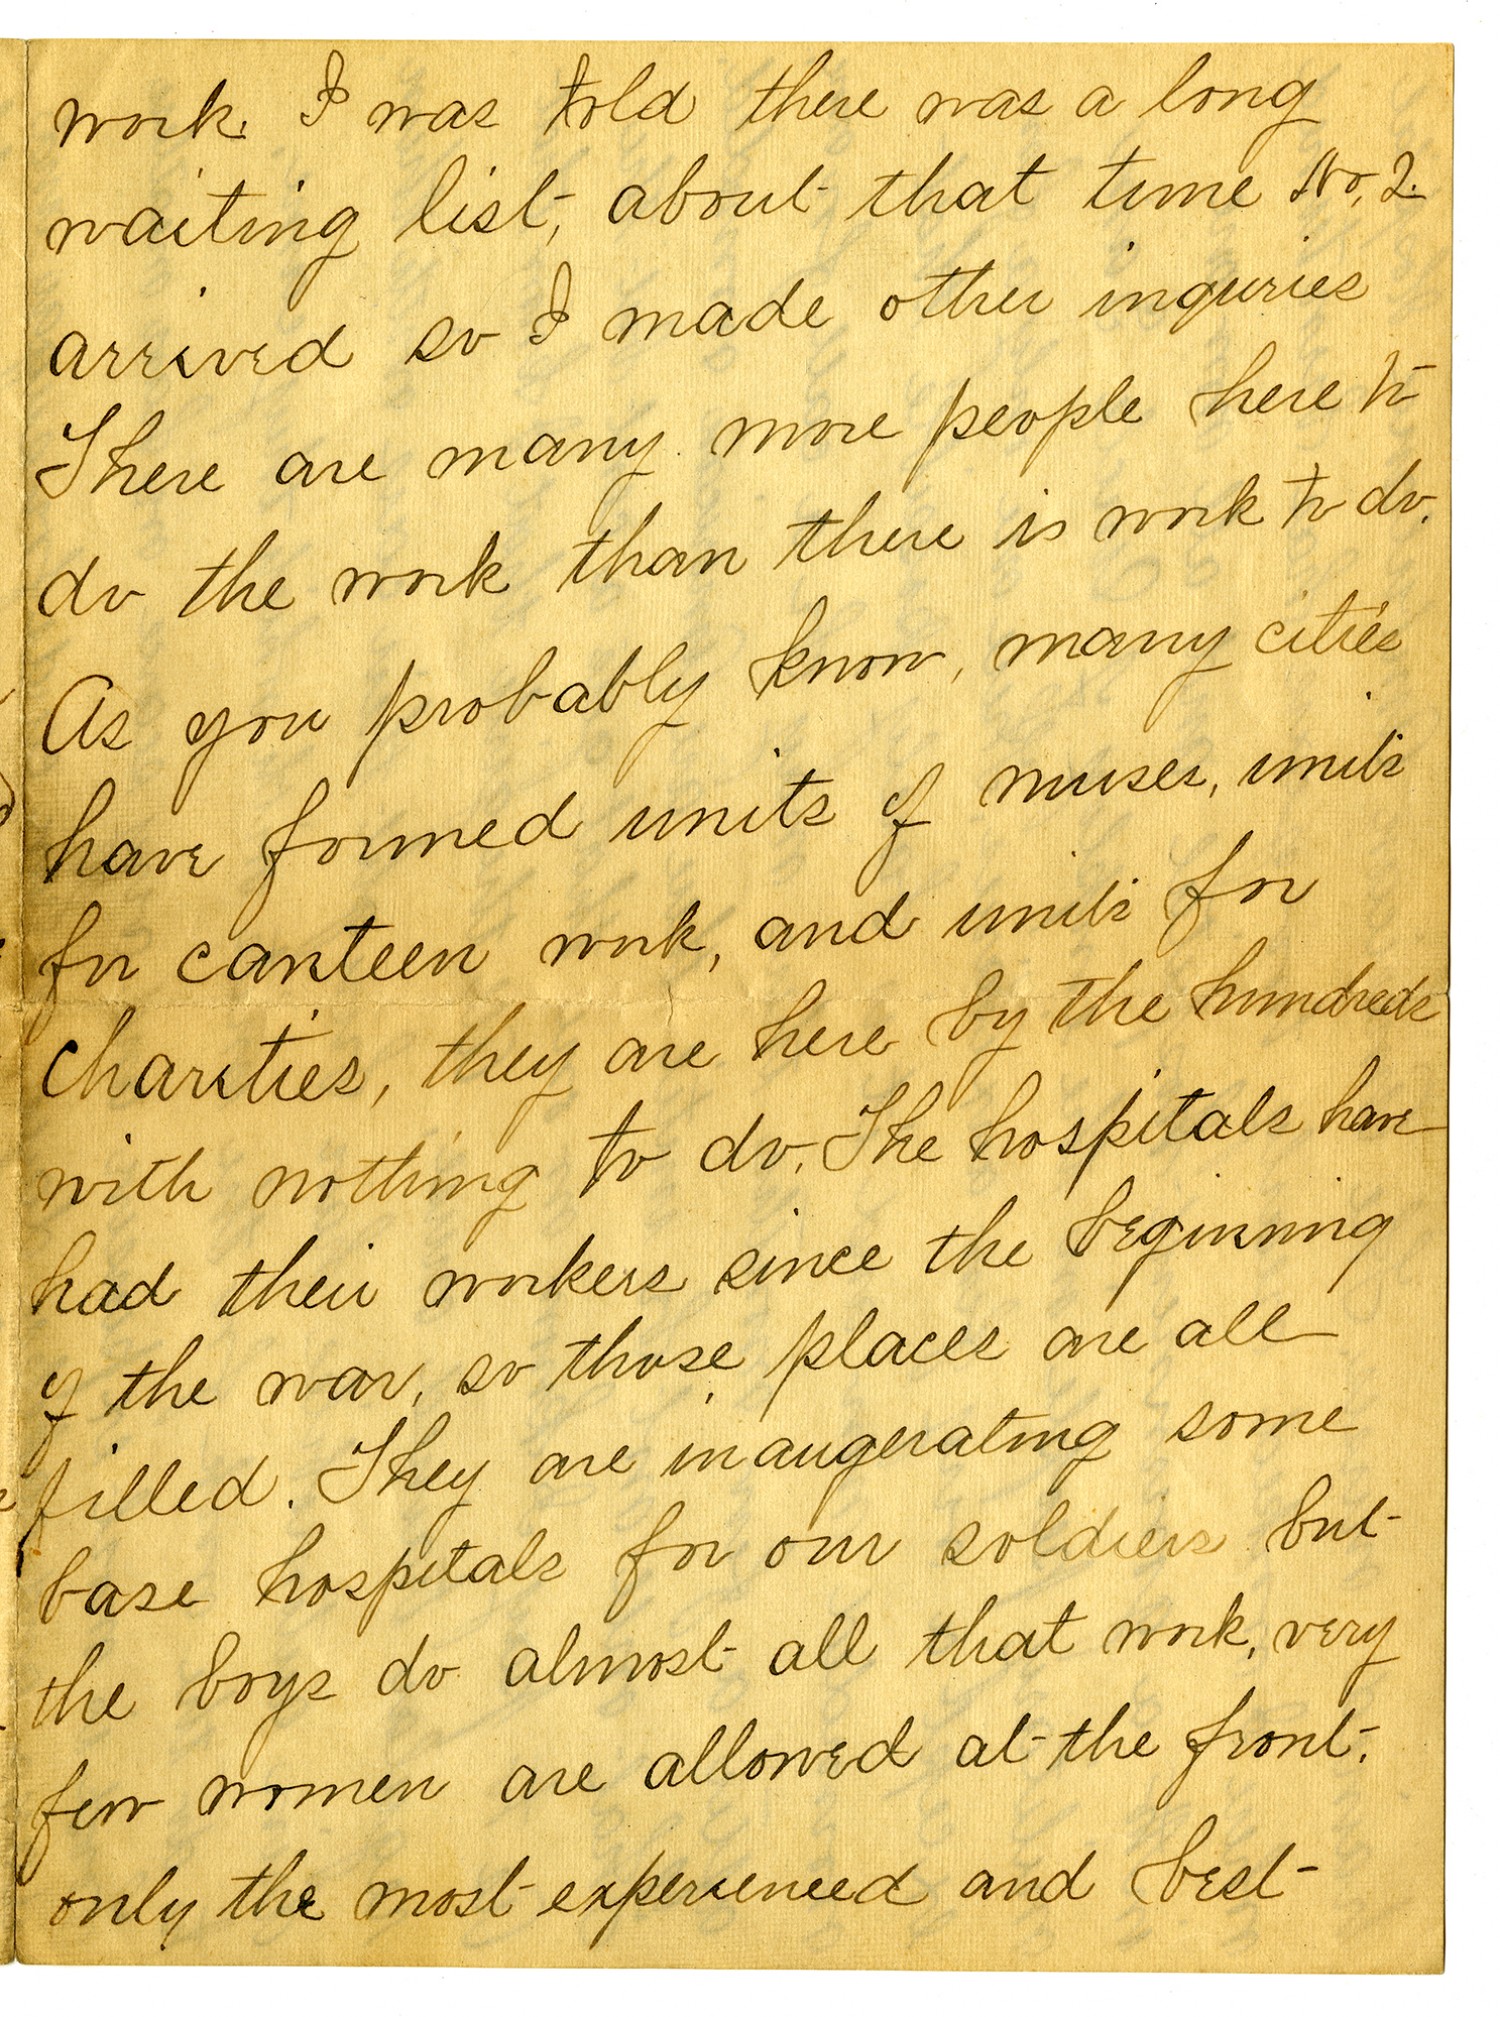 work. I was told there was a long
waiting list, about that time No. 2.
arrived so I made other inquries
There are many more people here to
do the work than there is work to do.
As you probably know, many cities
have formed units of nurses, units
for canteen work, and units for
charities, they are here by the hundreds
with nothing to do. The hospitals have
had their workers since the beginning
of the war, so those places are all
filled. They are inaugerating some
base hospitals for our soldiers but
the boys do almost all that work, very
few women are allowed at the front.
only the most experienced and best